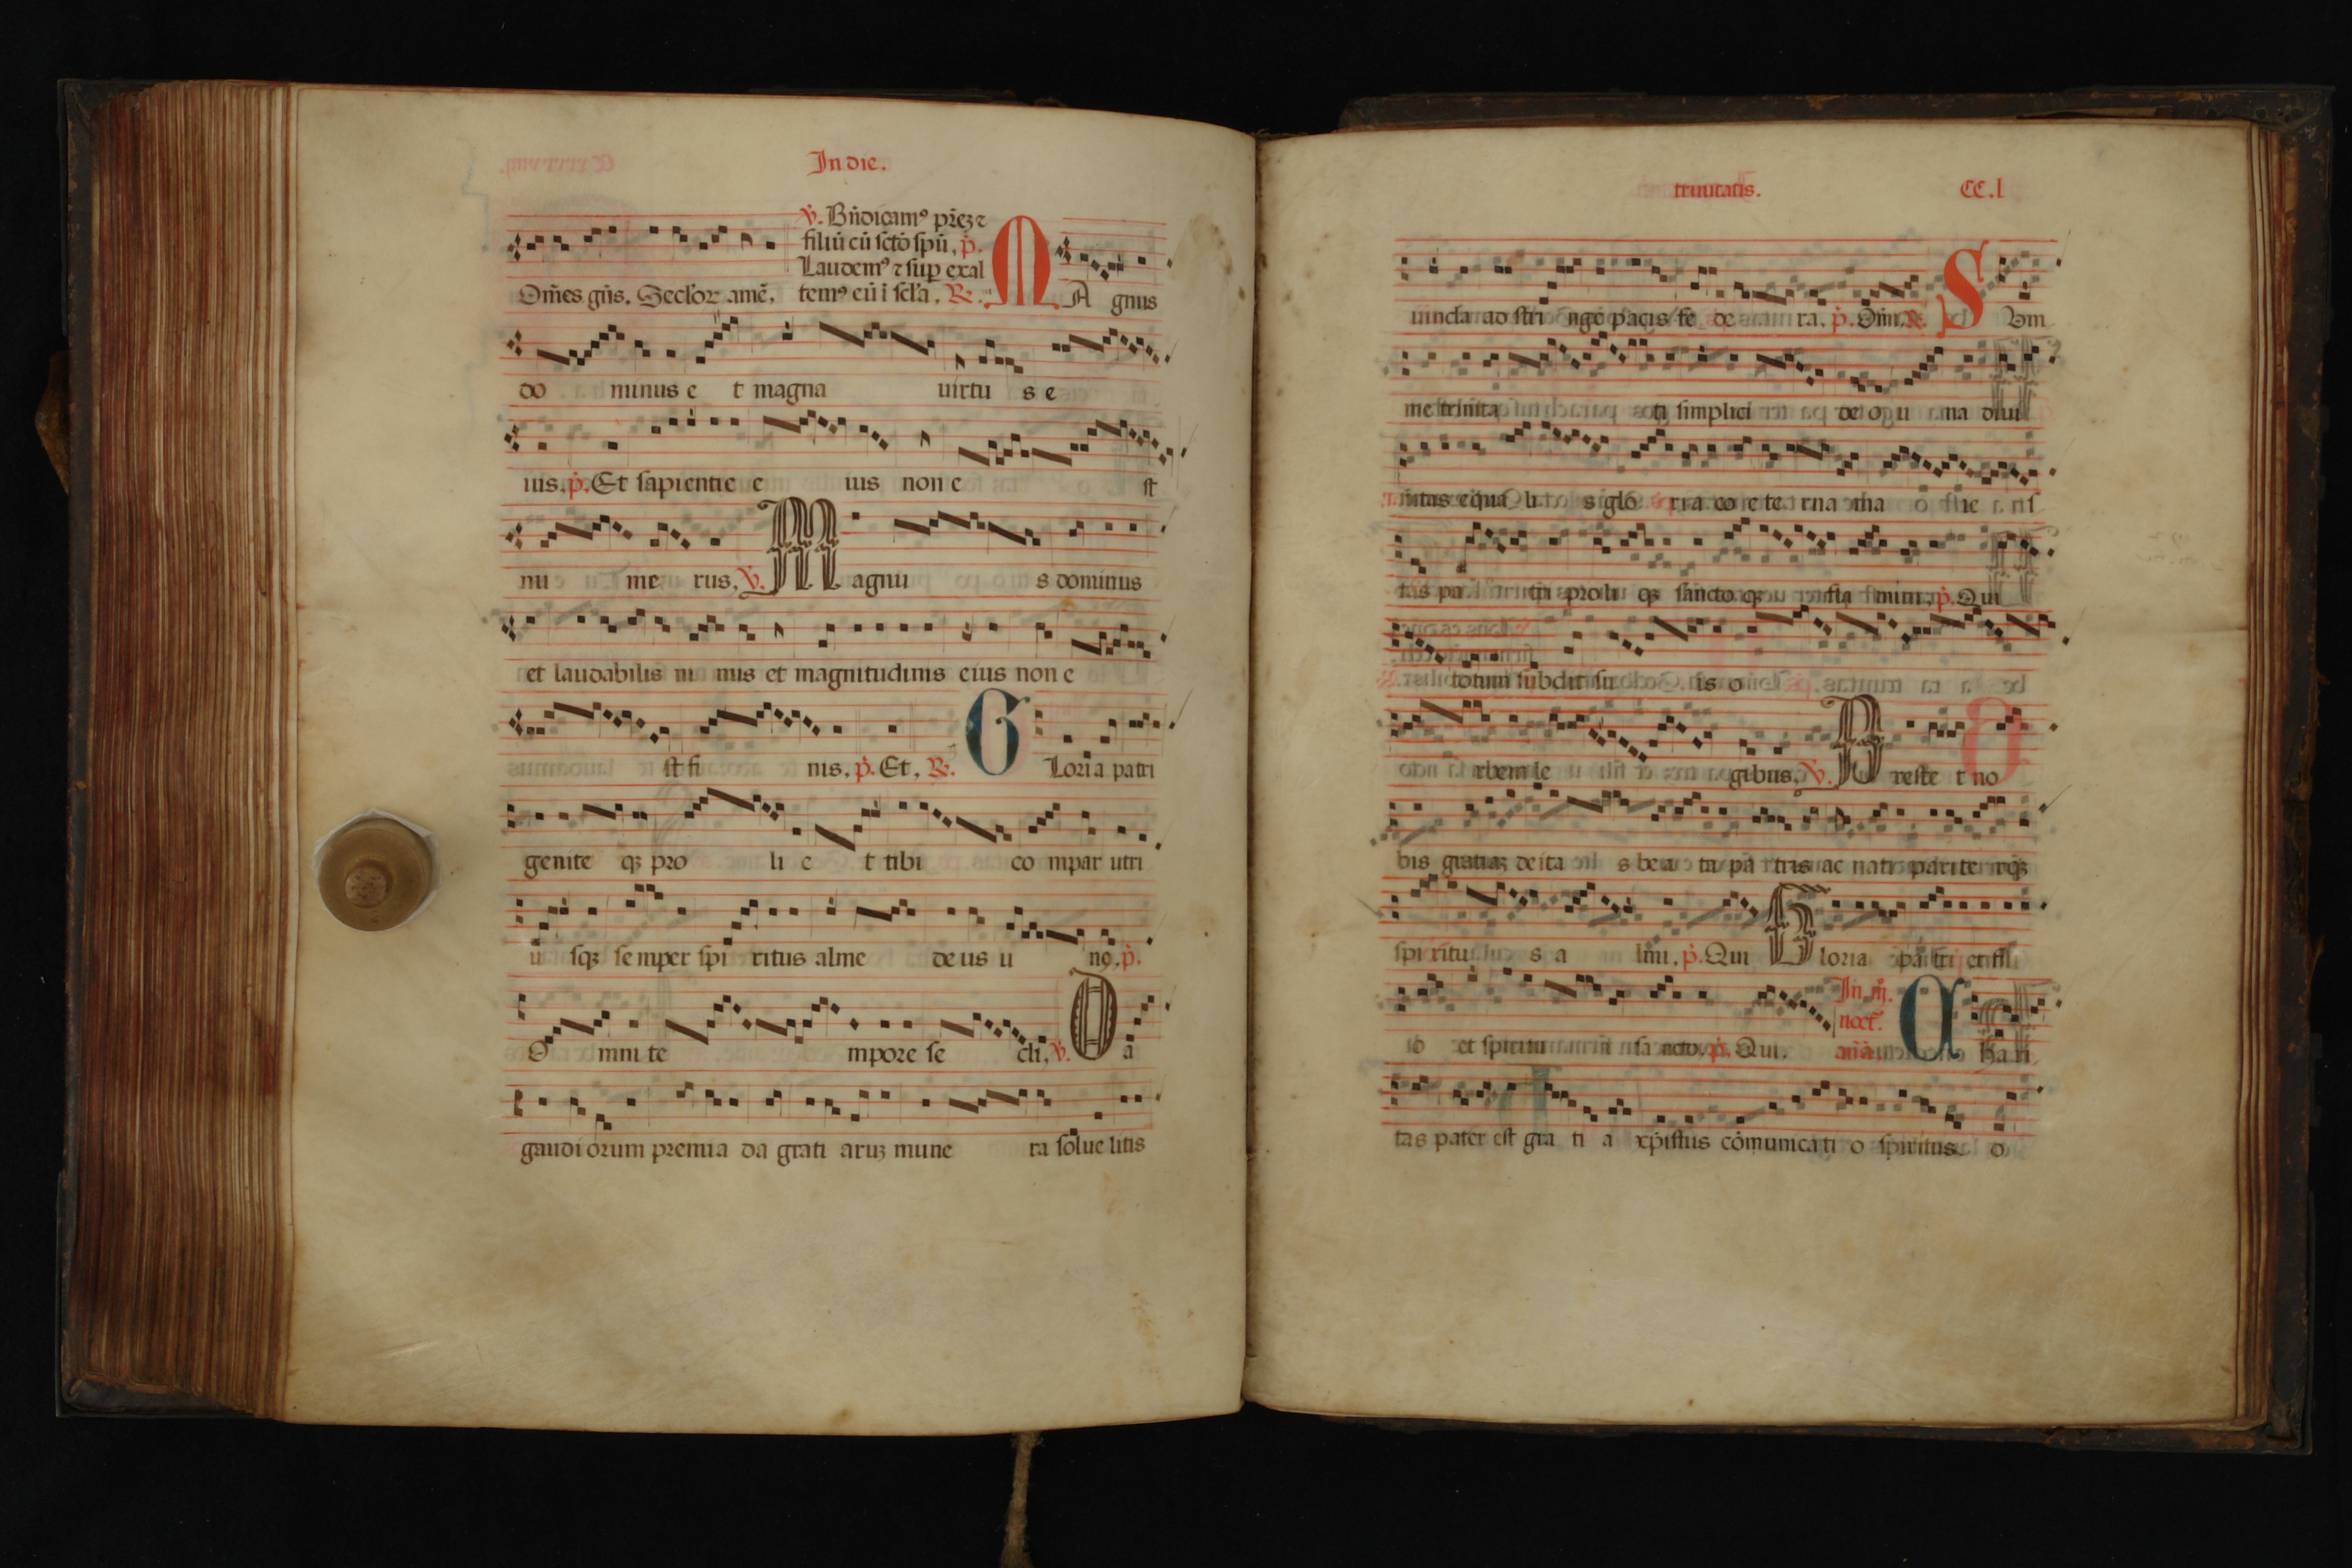 In die.
℣. Bñdicamꝰ pr̃eꝫ ⁊
filiũ cũ sctõ spũ. p̃.
Laudemꝰ ⁊ suꝑ exal
Om̃es gñs. Seclor amẽ. temꝰ eũ ĩ scl'a. ℟. MA gnus
do minus e t magna uirtu s e
ius. p̃. Et sapientie e ius non e st
nu me rus. ℣. Magnu s dominus
et laudabilis ni mis et magnitudinis eius non e
st fi nis. p̃. Et. ℟. GLoria patri
genite qꝫ pro li e t tibi co mpar utri
u sqꝫ semper spi ritus alme deus u no. p̃.
O mni te mpore se cli. ℣. Da
gaudiorum premia da grati aruꝫ mune ra solue litis
trinitatis. CC.l
uincla ad stri nge pacis fe de ra. p̃. Om̃i. ℟. SVm
me trinita ti simplici de o u na diui
nitas equa li s glo ria co e te rna ma ie s
tas pa tri proli qꝫ sancto qꝫ fla mini. p̃. Qui
totum subdit su is o
rbem le gibus. ℣. Preste t no
bis gratiaꝫ deita s bea ta pa tris ac nati parite rqꝫ
spiritu s a lmi. p̃. Qui Gloria pa tri et fili
In .iij.
noct̃.
io et spiritui sa ncto. p̃. Qui. añã. Chari
tas pater est gra ti a xp̃istus cõmunicati o spiritus o